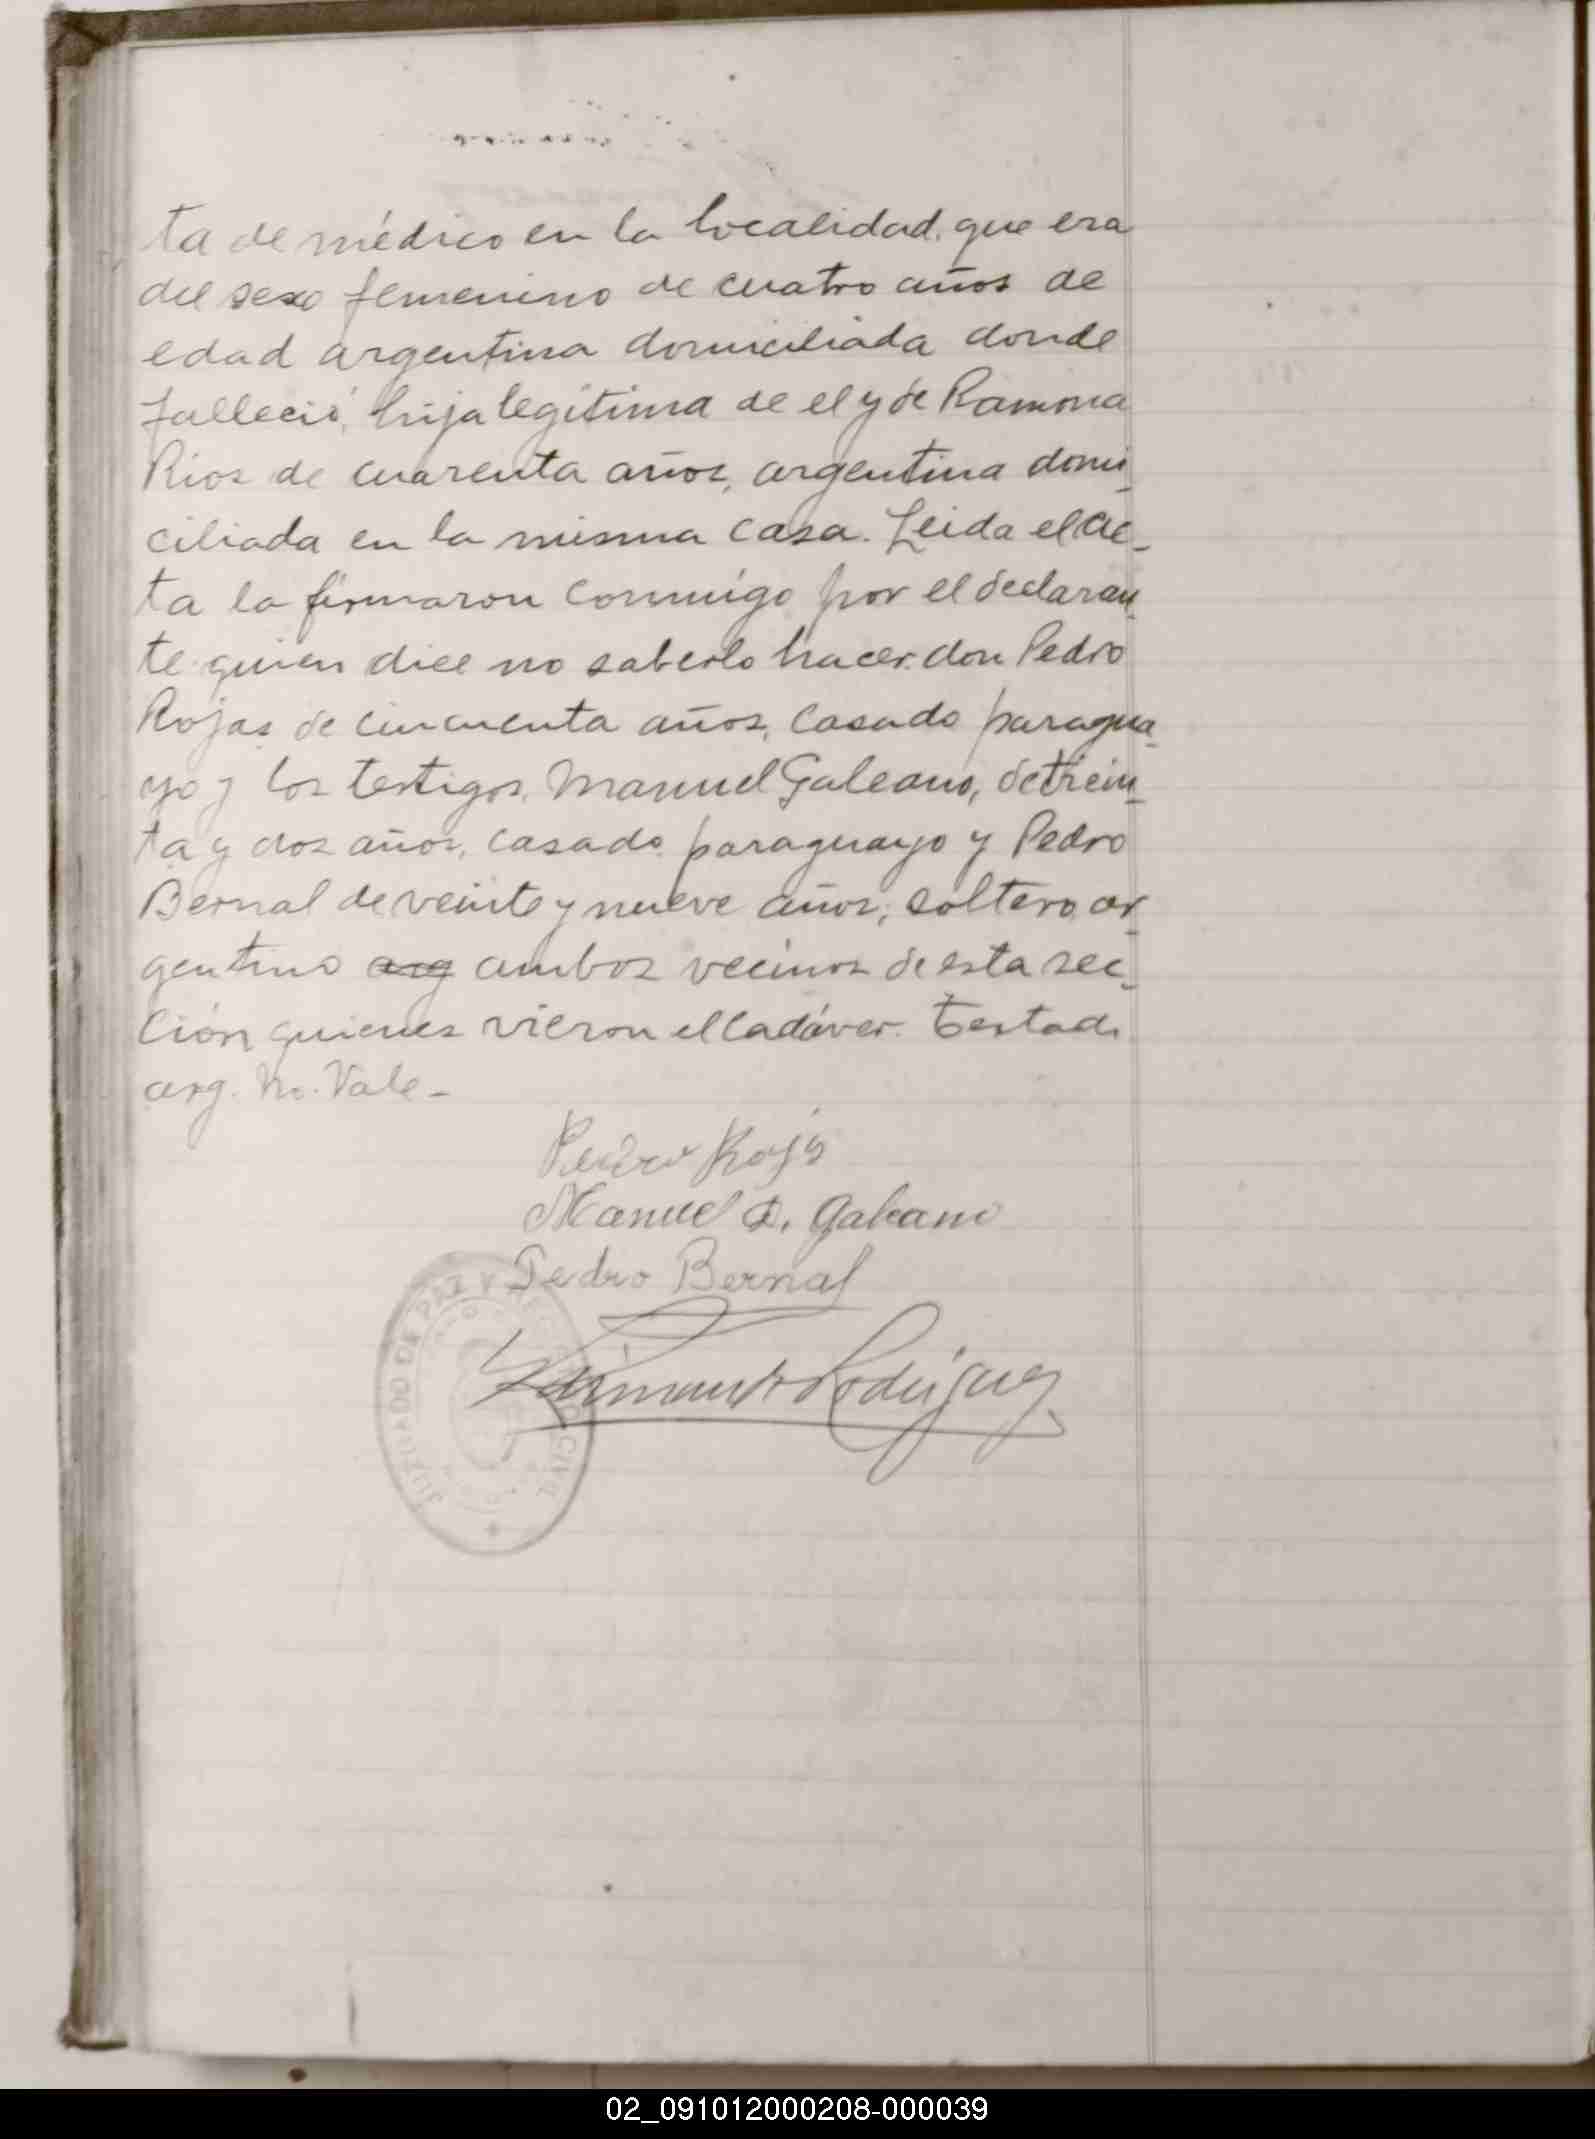 ta de médico en la localidad, que era
del sexo femenino de cuatro años de
edad argentina domiciliada donde
falleció, hija legítima de el y de Ramona
Rios de cuarenta años, argentina domi-
ciliada en la misma casa. Leida el ac-
ta la firmaron conmigo por el declaran-
te quien dice no saberlo hacer don Pedro
Rojas de cincuenta años, casado paragua-
yo y los testigos, Manuel Galeano, de trein-
ta y dos años, casado paraguayo y Pedro
Bernal de veinte y nueve años, soltero, ar-
gentino arg ambos vecinos de esta sec-
ción quienes vieron el cadáver. Testado
arg. No. Vale-
Pedro Rojas
Manuel D. Galeano
Pedro Bernal
Rodriguez
JUZGADO DE PAZ Y REGISTRO CIVIL
02_091012000208-000039